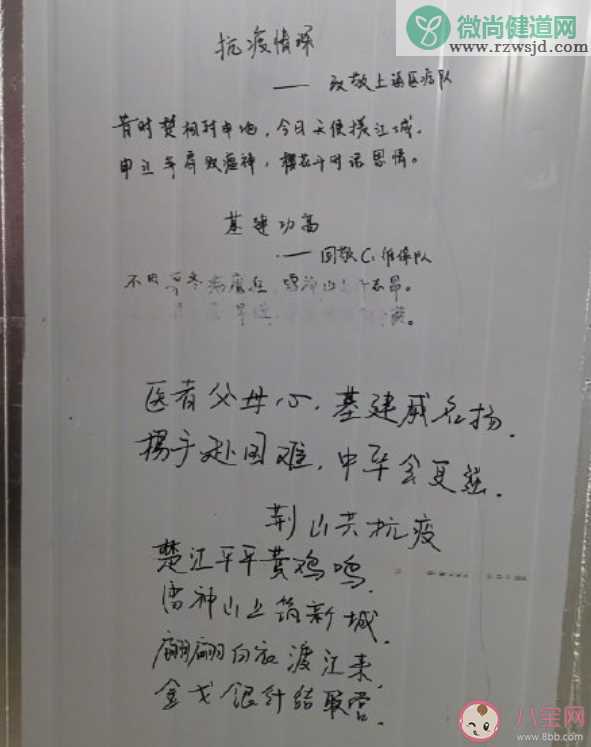 微尚健道网
www.rzwsjd.com
抗疫情深
——致敬上海医疗队
昔时楚相封申地，今日天使援江城。
申江年肩败瘟神，樱花斗时话恩情。
基建功高
——回敬C1维保队
不 冬 病 在，雷神山 志昂。
医者父母心，基建威名扬，
携手赴国难，中华会复兴。
荆山共抗疫
楚江平平黄鸡鸣，
雷神山上筑新城，
翩翩白衣渡江来，
金戈银针结联营。
八宝网
www.8bb.com